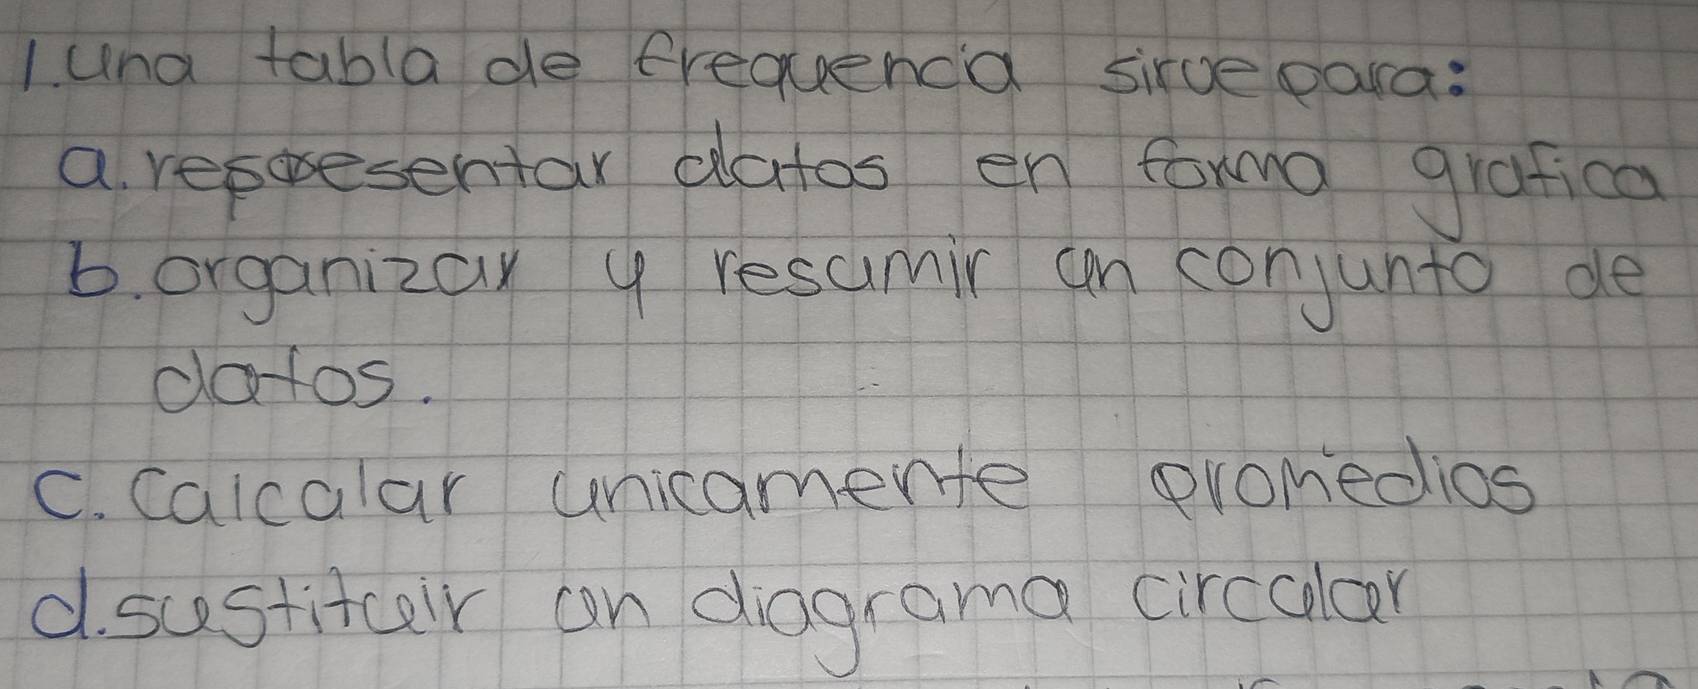 1. Una tabla de frequencia sirve para:
a. representar datos en forma grafica
b. organizar y resumir un conjunto de
datos.
c. Calcular unicamente promedios
d. sustituir un diagrama circular